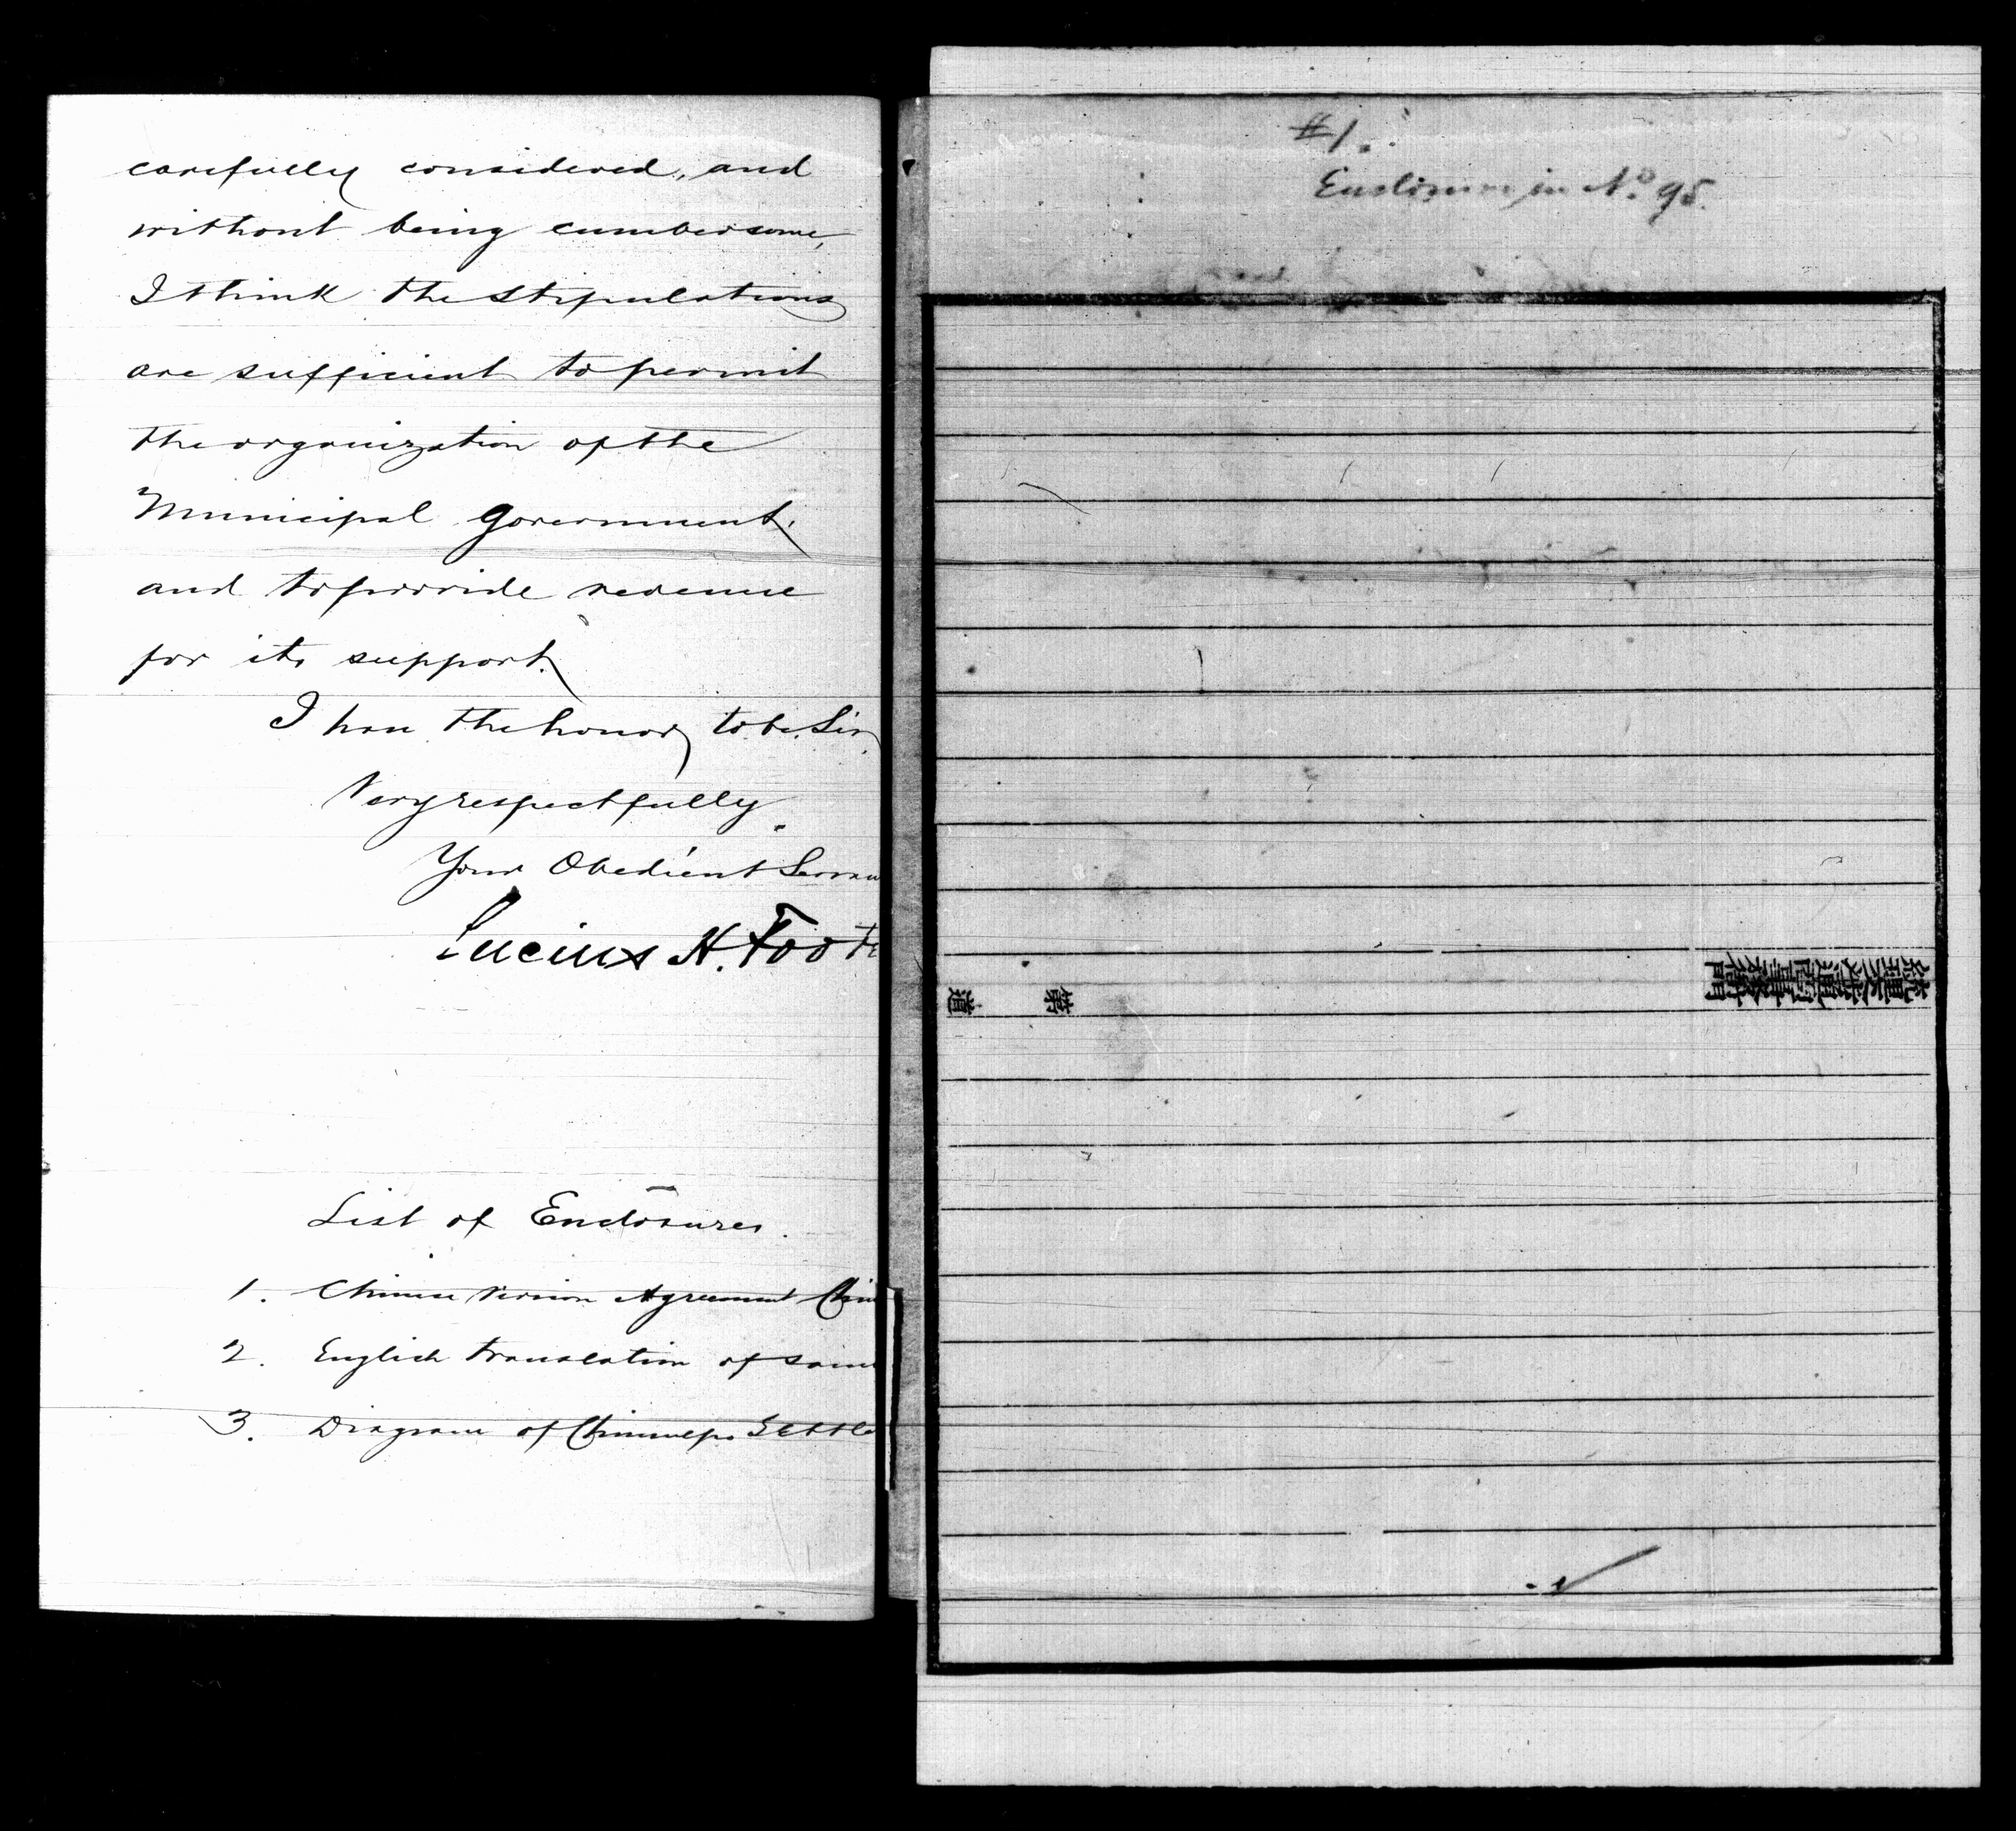 carefully considered, and
without being cumbersome,
I think the stipulations
are sufficient to permit
the organization of the
Municipal Government,
and to provide revenue
for its support.
I have the honor, to be, Sir,
Very respectfully
Your Obedient Servan
Lucius H. Foote
List of Enclosures.
1. Chinese Version Agreement Chin
2. English translation of same
3. Diagram of Chimulpo Settle
#1.
Enclosure in No. 95.
第 道